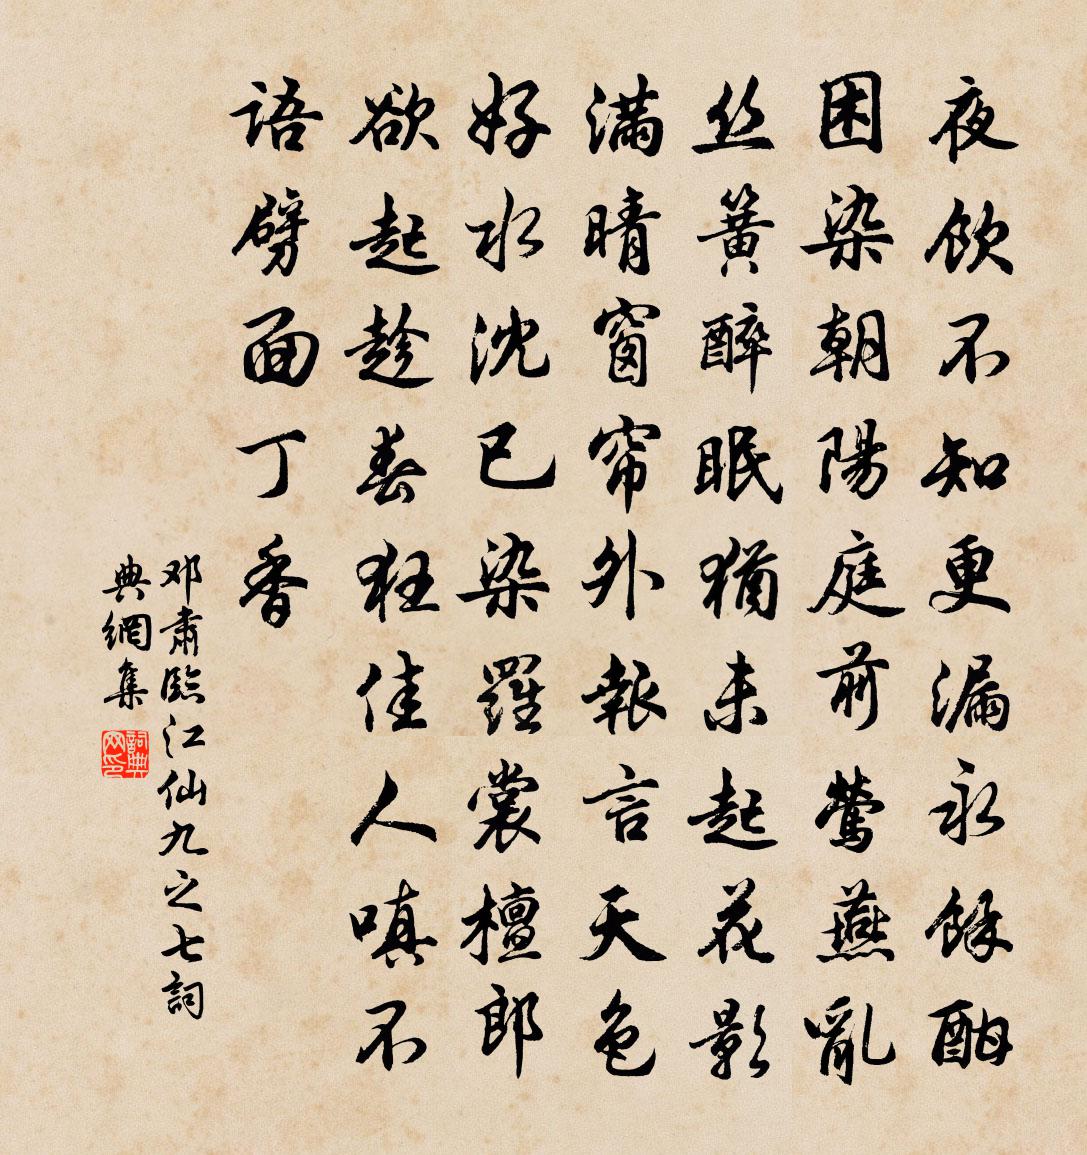 夜飲不知更漏永餘酣
困染朝陽庭前鶯燕亂
丝簧醉眠猶未起花影
滿晴窗帘外報言天色
好水沈已染羅裳檀郎
欲起趁春狂佳人嗔不
语劈面丁香
邓肃臨江仙九之七詞
典網集
詞典网印